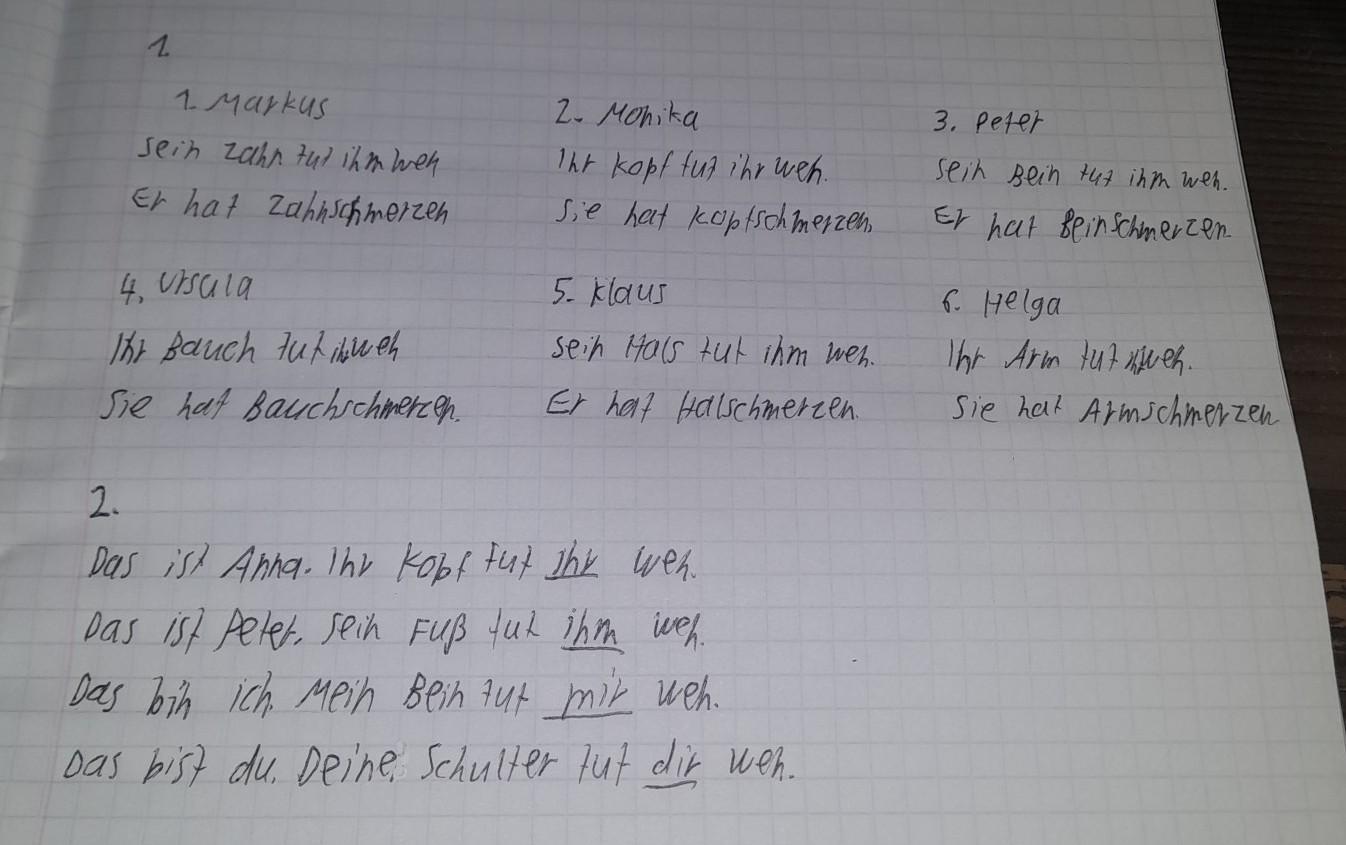 1.
1. Markus
Sein Zahn tut ihm weh
Er hat Zahnschmerzen
2. Monika
Ihr Kopf tut ihr weh.
Sie hat Kopfschmerzen.
3. Peter
Sein Bein tut ihm weh.
Er hat Beinschmerzen.
4. Ursula
Ihr Bauch tut weh
Sie hat Bauchschmerzen.
5. Klaus
Sein Hals tut ihm weh.
Er hat Halschmerzen.
6. Helga
Ihr Arm tut weh.
Sie hat Armschmerzen
2.
Das ist Anna. Ihr Kopf tut ihr weh.
Das ist Peter. Sein Fuß tut ihm weh.
Das bin ich. Mein Bein tut mir weh.
Das bist du. Deine Schulter tut dir weh.